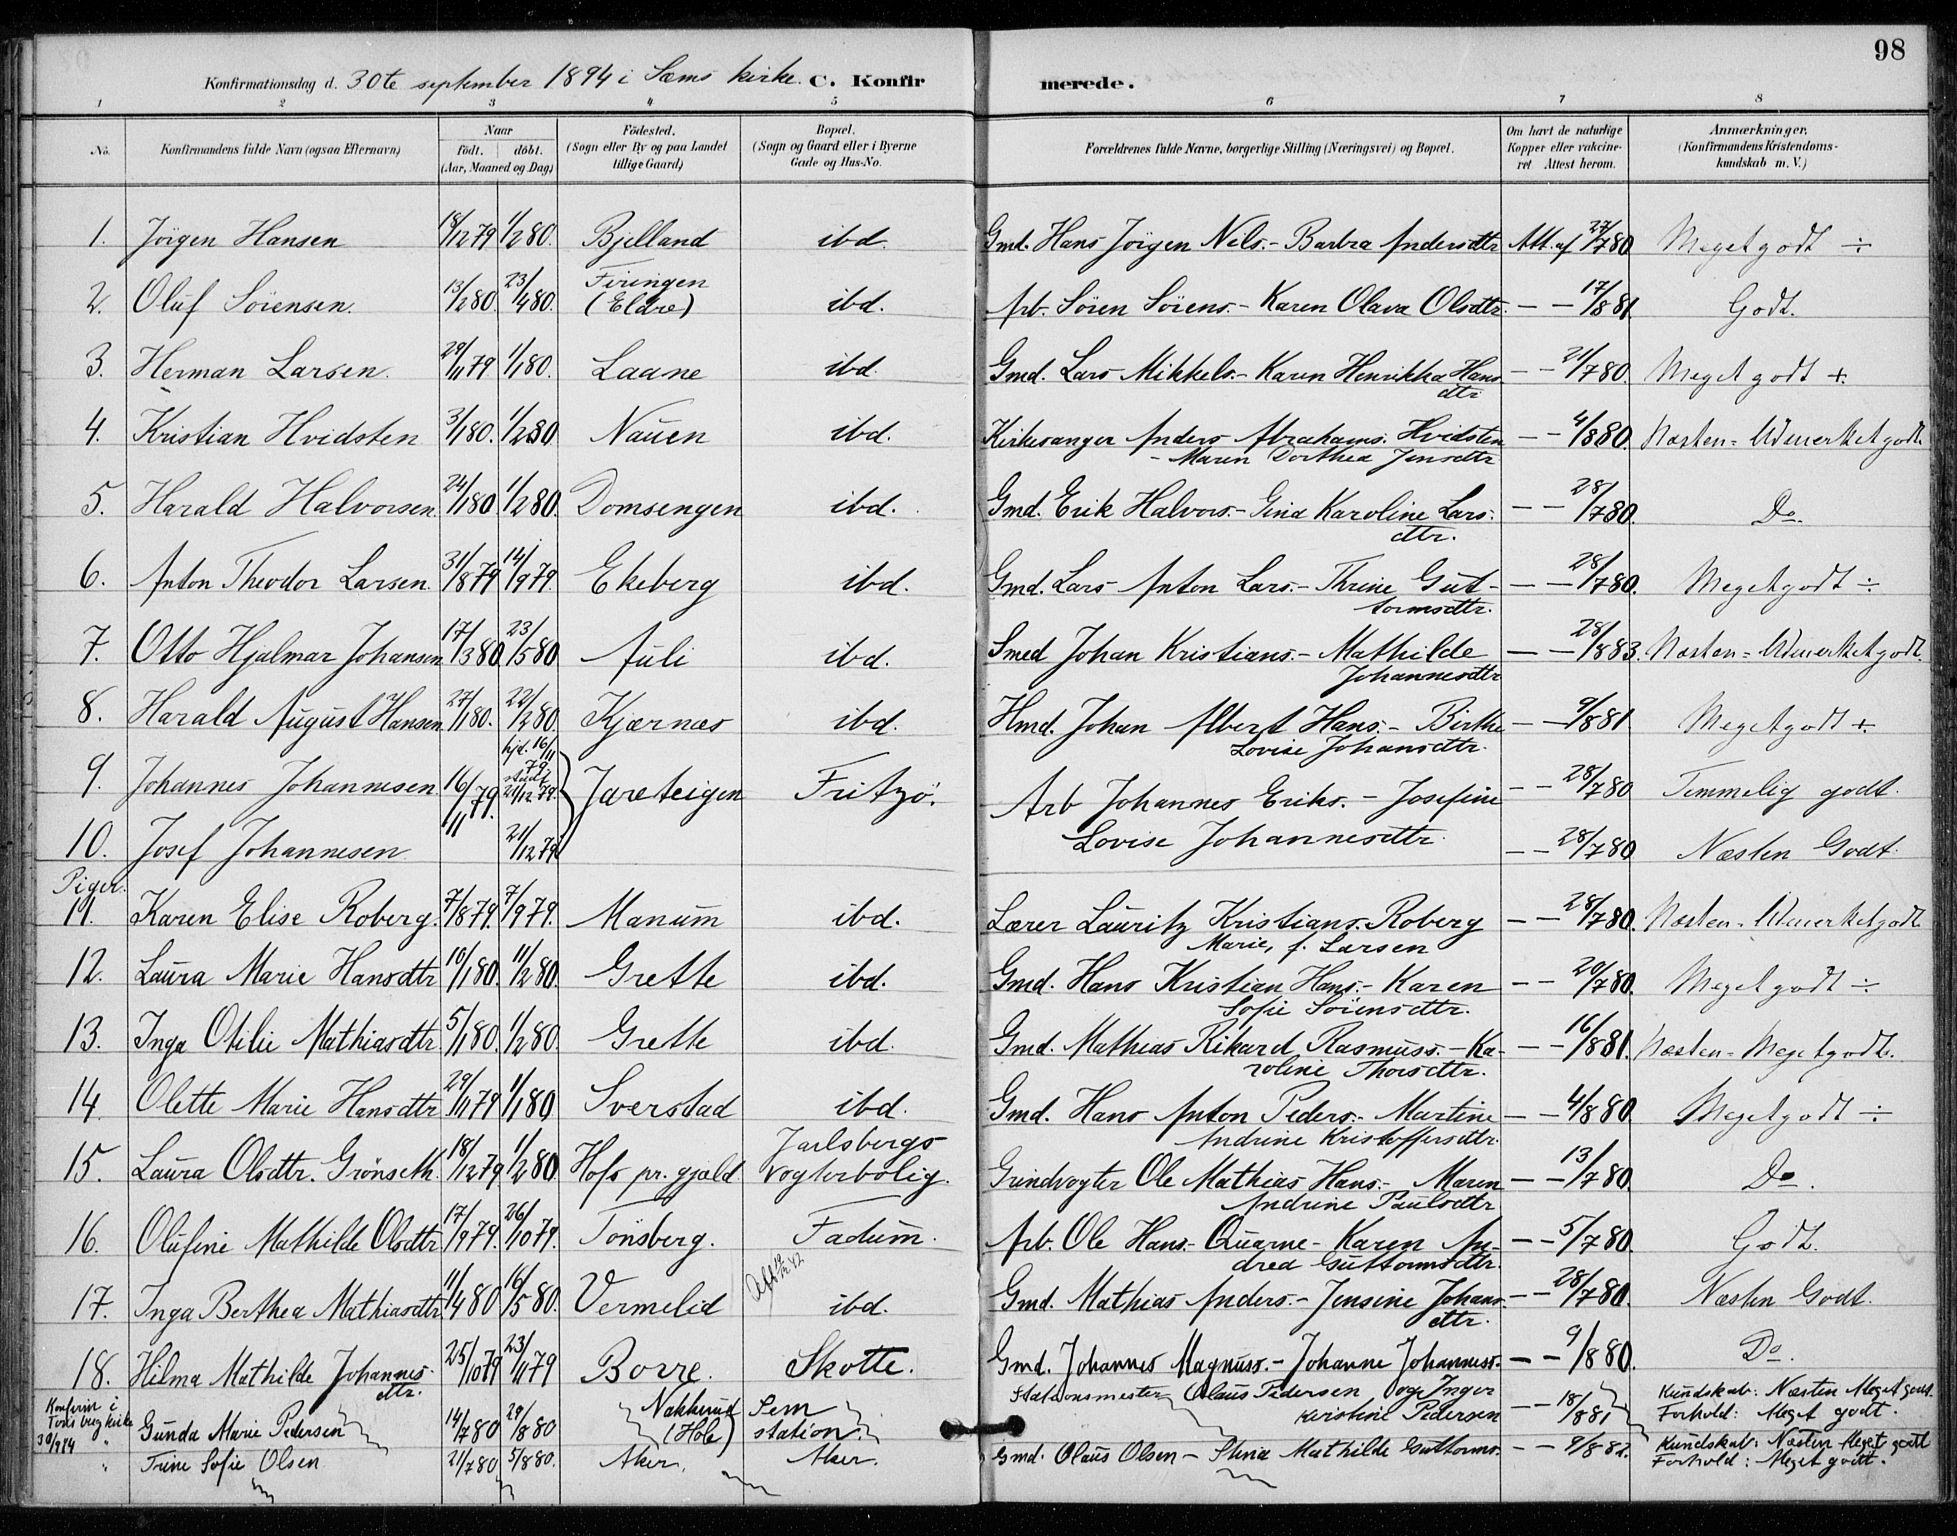 98
Konfirmationsdag d. 30te september 1894 i Sems kirke. C. Konfirmerede.
1 2 3 4 5 6 7 8
No. Konfirmandens fulde Navn (ogsaa Efternavn) Naar födt. döbt. (Aar, Maaned og Dag) Födested. (Sogn eller By og paa Landet tillige Gaard) Bopæl. (Sogn og Gaard eller i Byerne Gade og Hus-No. Forældrenes fulde Navne, borgerlige Stilling (Næringsvei) og Bopæl. Om havt de naturlige Kopper eller vakcineret Attest herom. Anmærkninger. (Konfirmandens Kristendomskundskab m. V.)
1. Jörgen Hansen 18/12 79 1/2 80. Bjelland ibd. Gmd. Hans Jörgen Nels.- Barbra Andersdtr Att. af 27/7 80 Meget godt ÷
2. Oluf Sörensen. 13/2 80. 23/4 80. Firingen (Eldre) ibd. Arb. Sören Sörens.- Karen Olava Olsdtr. – – 17/8 81. Godt.
3. Herman Larsen. 29/11 79 1/1 80. Laane ibd. Gmd. Lars Mikkels.- Karen Henrikka Hansdtr – – 21/7 80. Meget godt +
4. Kristian Hvidsten 3/1 80. 1/2 80 Nauen ibd. Kirkesanger Anders Abrahams. Hvidsten – – 4/8 80. Næsten-Udmerket godt.
- Maren Dorthea Jensdtr
5. Harald Halvorsen. 24/1 80 1/2 80. Domsengen ibd. Gmd. Erik Halvors.- Gina Karoline Larsdtr. – – 28/7 80. Do.
6. Anton Theodor Larsen. 31/8 79 14/9 79. Ekeberg ibd. Gmd. Lars Anton Lars.- Thrine Guttormsdtr. – – 28/7 80. Meget godt ÷
7. Otto Hjalmar Johansen 17/3 80. 23/5 80 Auli ibd. Smed Johan Kristians.- Mathilde Johannesdtr – – 28/8 83. Næsten-Udmerket godt.
8. Harald August Hansen 27/1 80. 22/2 80. Kjærnæs ibd. Hmd. Johan Albert Hans.- Birthe Lovise Johansdtr. – – 9/8 81 Meget godt +
9. Johannes Johannesen 16/11 79. hjd. 16/11 79 stadf. 21/12 79. Jareteigen Fritzö. Arb Johannes Eriks.- Josefine – – 28/7 80 Temmelig godt.
10. Josef Johannesen 21/12 79 Lovise Johannesdtr. – – 28/7 80 Næsten Godt
Piger.
11. Karen Elise Roberg. 7/8 79. 7/9 79. Manum ibd. Lærer Lauritz Kristians. Roberg – – 28/7 80. Næsten-Udmerket godt
Marie, f. Larsen
12. Laura Marie Hansdtr 10/1 80. 11/2 80. Grette ibd. Gmd. Hans Kristian Hans.- Karen Sofie Sörensdtr. – – 20/7 80. Meget godt ÷
13. Inga Otilie Mathiasdtr 5/1 80. 1/2 80. Grette ibd. Gmd. Mathias Rikard Rasmuss.- Karoline Thorsdtr. – – 16/8 81. Næsten-Meget godt.
14. Olette Marie Hansdtr 29/11 79 1/1 80 Sverstad ibd. Gmd. Hans Anton Peders.- Martine Andrine Kristoffersdtr. – – 4/8 80. Meget godt ÷
15. Laura Olsdtr. Grönseth. 18/12 79 1/2 80 Hofs pr.gjæld Jarlsbergs Vogterbolig. Grindvogter Ole Mathias Hans.- Maren Andrine Paulsdtr – – 13/7 80. Do.
16. Olufine Mathilde Olsdtr 17/9 79. 26/10 79. Tönsberg. Fadum. Arb. Ole Hans.- Quarne- Karen Andrea Guttormsdtr. – – 5/7 80. Godt.
17. Inga Berthea Mathiasdtr 11/4 80 16/5 80. Vermelid ibd. Gmd. Mathias Anders.- Jensine Johansdtr. – – 28/7 80. Næsten Godt.
18. Hilma Mathilde Johannesdtr. 25/10 79 23/11 79 Borre. Skotte. Gmd. Johannes Magnuss.- Johanne Johanness. – – 9/8 80. Do.
Konfirm i Tönsberg kirke 30/9 94 Gunda Marie Pedersen 14/7 80 29/8 80 Nakkerud (Hole) Sem station. Stationsmester Olaus Pedersen og Inger Kristine Pedersen – – 18/8 81 Kundskab: Næsten Meget godt. Forhold: Meget godt.
" Trine Sofie Olsen 21/7 80 5/8 80. Aker. Aker. Gmd. Olaus Olsen – Stina Mathilde Guttorms. – – 9/8 82. Kundskab: Næsten Meget godt Forhold: Meget godt.